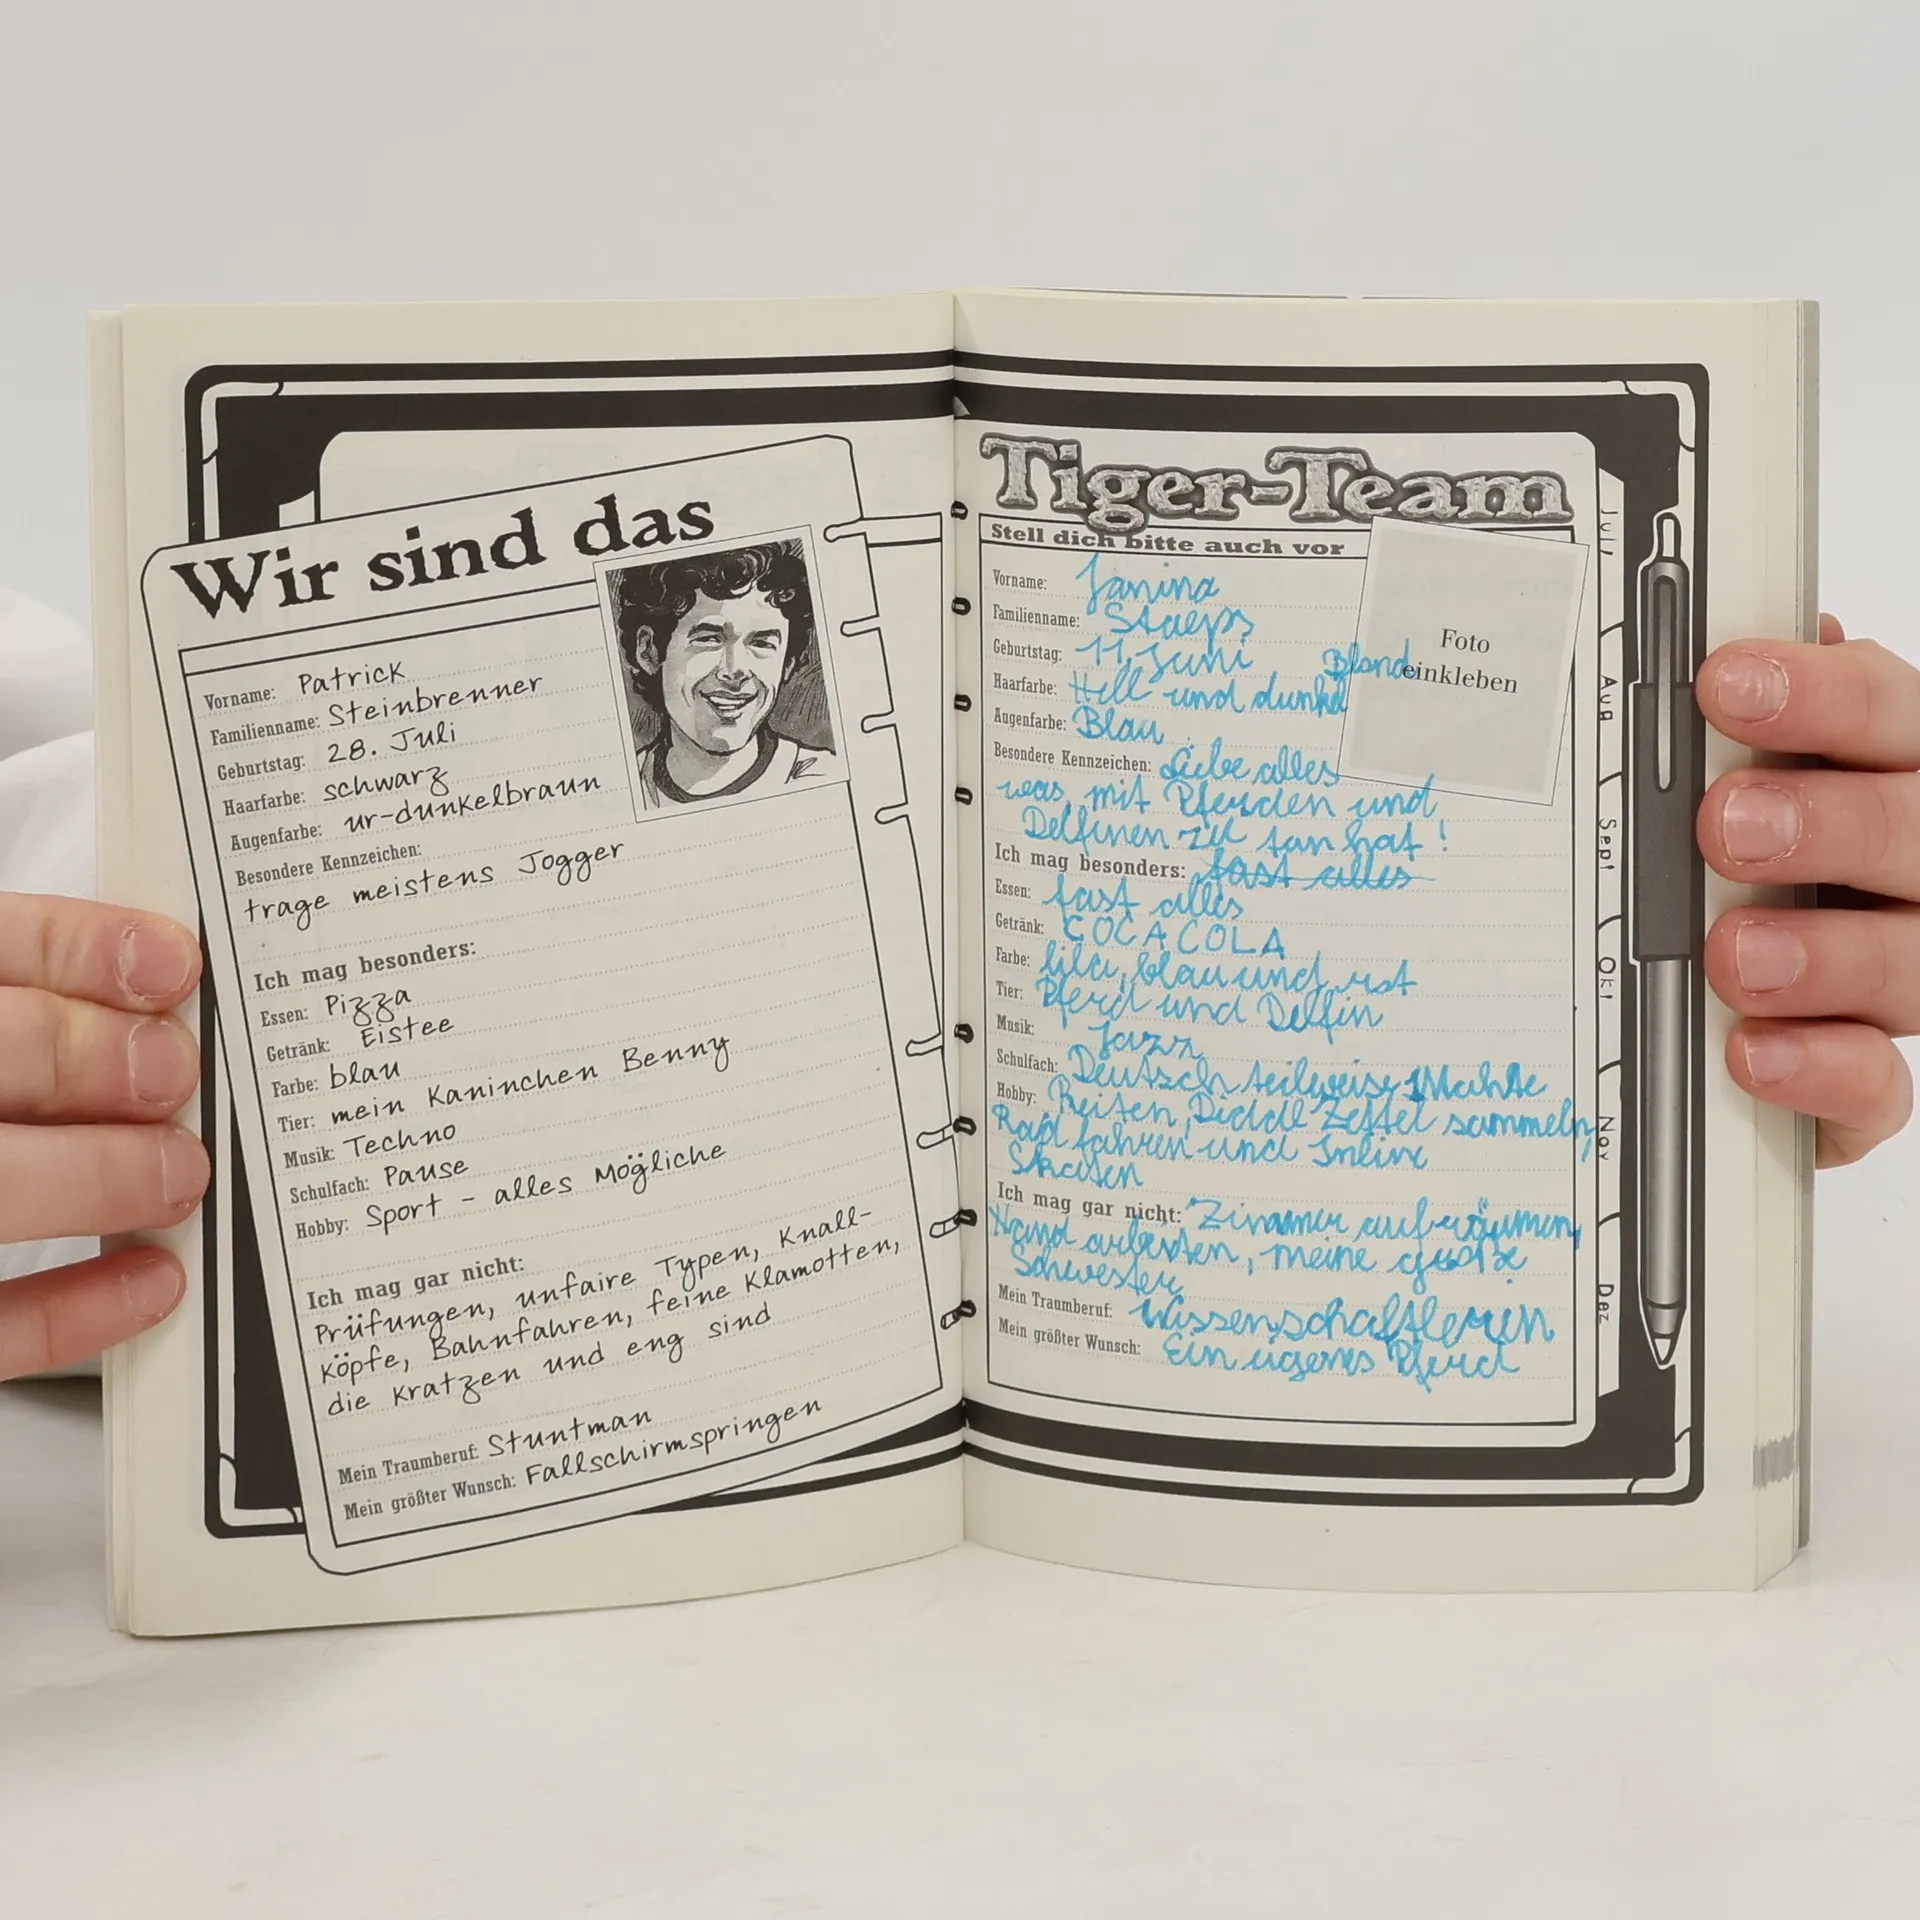 Wir sind das
Vorname: Patrick
Familienname: Steinbrenner
Geburtstag: 28. Juli
Haarfarbe: schwarz
Augenfarbe: ur-dunkelbraun
Besondere Kennzeichen:
trage meistens Jogger
Ich mag besonders:
Essen: Pizza
Getränk: Eistee
Farbe: blau
Tier: mein Kaninchen Benny
Musik: Techno
Schulfach: Pause
Hobby: Sport - alles Mögliche
Ich mag gar nicht:
Prüfungen, unfaire Typen, Knall-
köpfe, Bahnfahren, feine Klamotten,
die kratzen und eng sind
Mein Traumberuf: Stuntman
Mein größter Wunsch: Fallschirmspringen
Tiger-Team
Stell dich bitte auch vor
Vorname: Janina
Familienname: Staeps
Geburtstag: 11. Juni
Blond
Haarfarbe: Hell und dunkel
Augenfarbe: Blau
Foto
einkleben
Besondere Kennzeichen: Liebe alles
was mit Pferden und
Delfinen zu tan hat!
Ich mag besonders: fast alles
Essen: fast alles
Getränk: COCA COLA
Farbe: lila, blau und rot
Tier: Pferd und Delfin
Musik: Jazz
Schulfach: Deutsch teilweise Mahte
Hobby: Reiten, Diddl Zettel sammeln,
Rad fahren und Inline
Skaten
Ich mag gar nicht: Zimmer aufräumen,
Hand arbeiten, meine große
Schwester
Mein Traumberuf: Wissenschaftlerin
Mein größter Wunsch: Ein eigenes Pferd
Juli
Aug
Sept
Okt
Nov
Dez